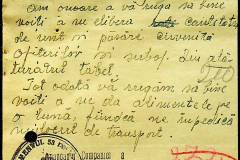 Am onoare a vă ruga să bine
voiți a ne elibera cantitatea
de unt și pâsare cuvenită
ofițerilor și subof. Din ală-
turatul tabel
Tot odată vă rugăm să bine
voiți a ne da alimentele pe
o lună, fiindcă ne împedică
mijlocul de transport
Comandantul Companiei a